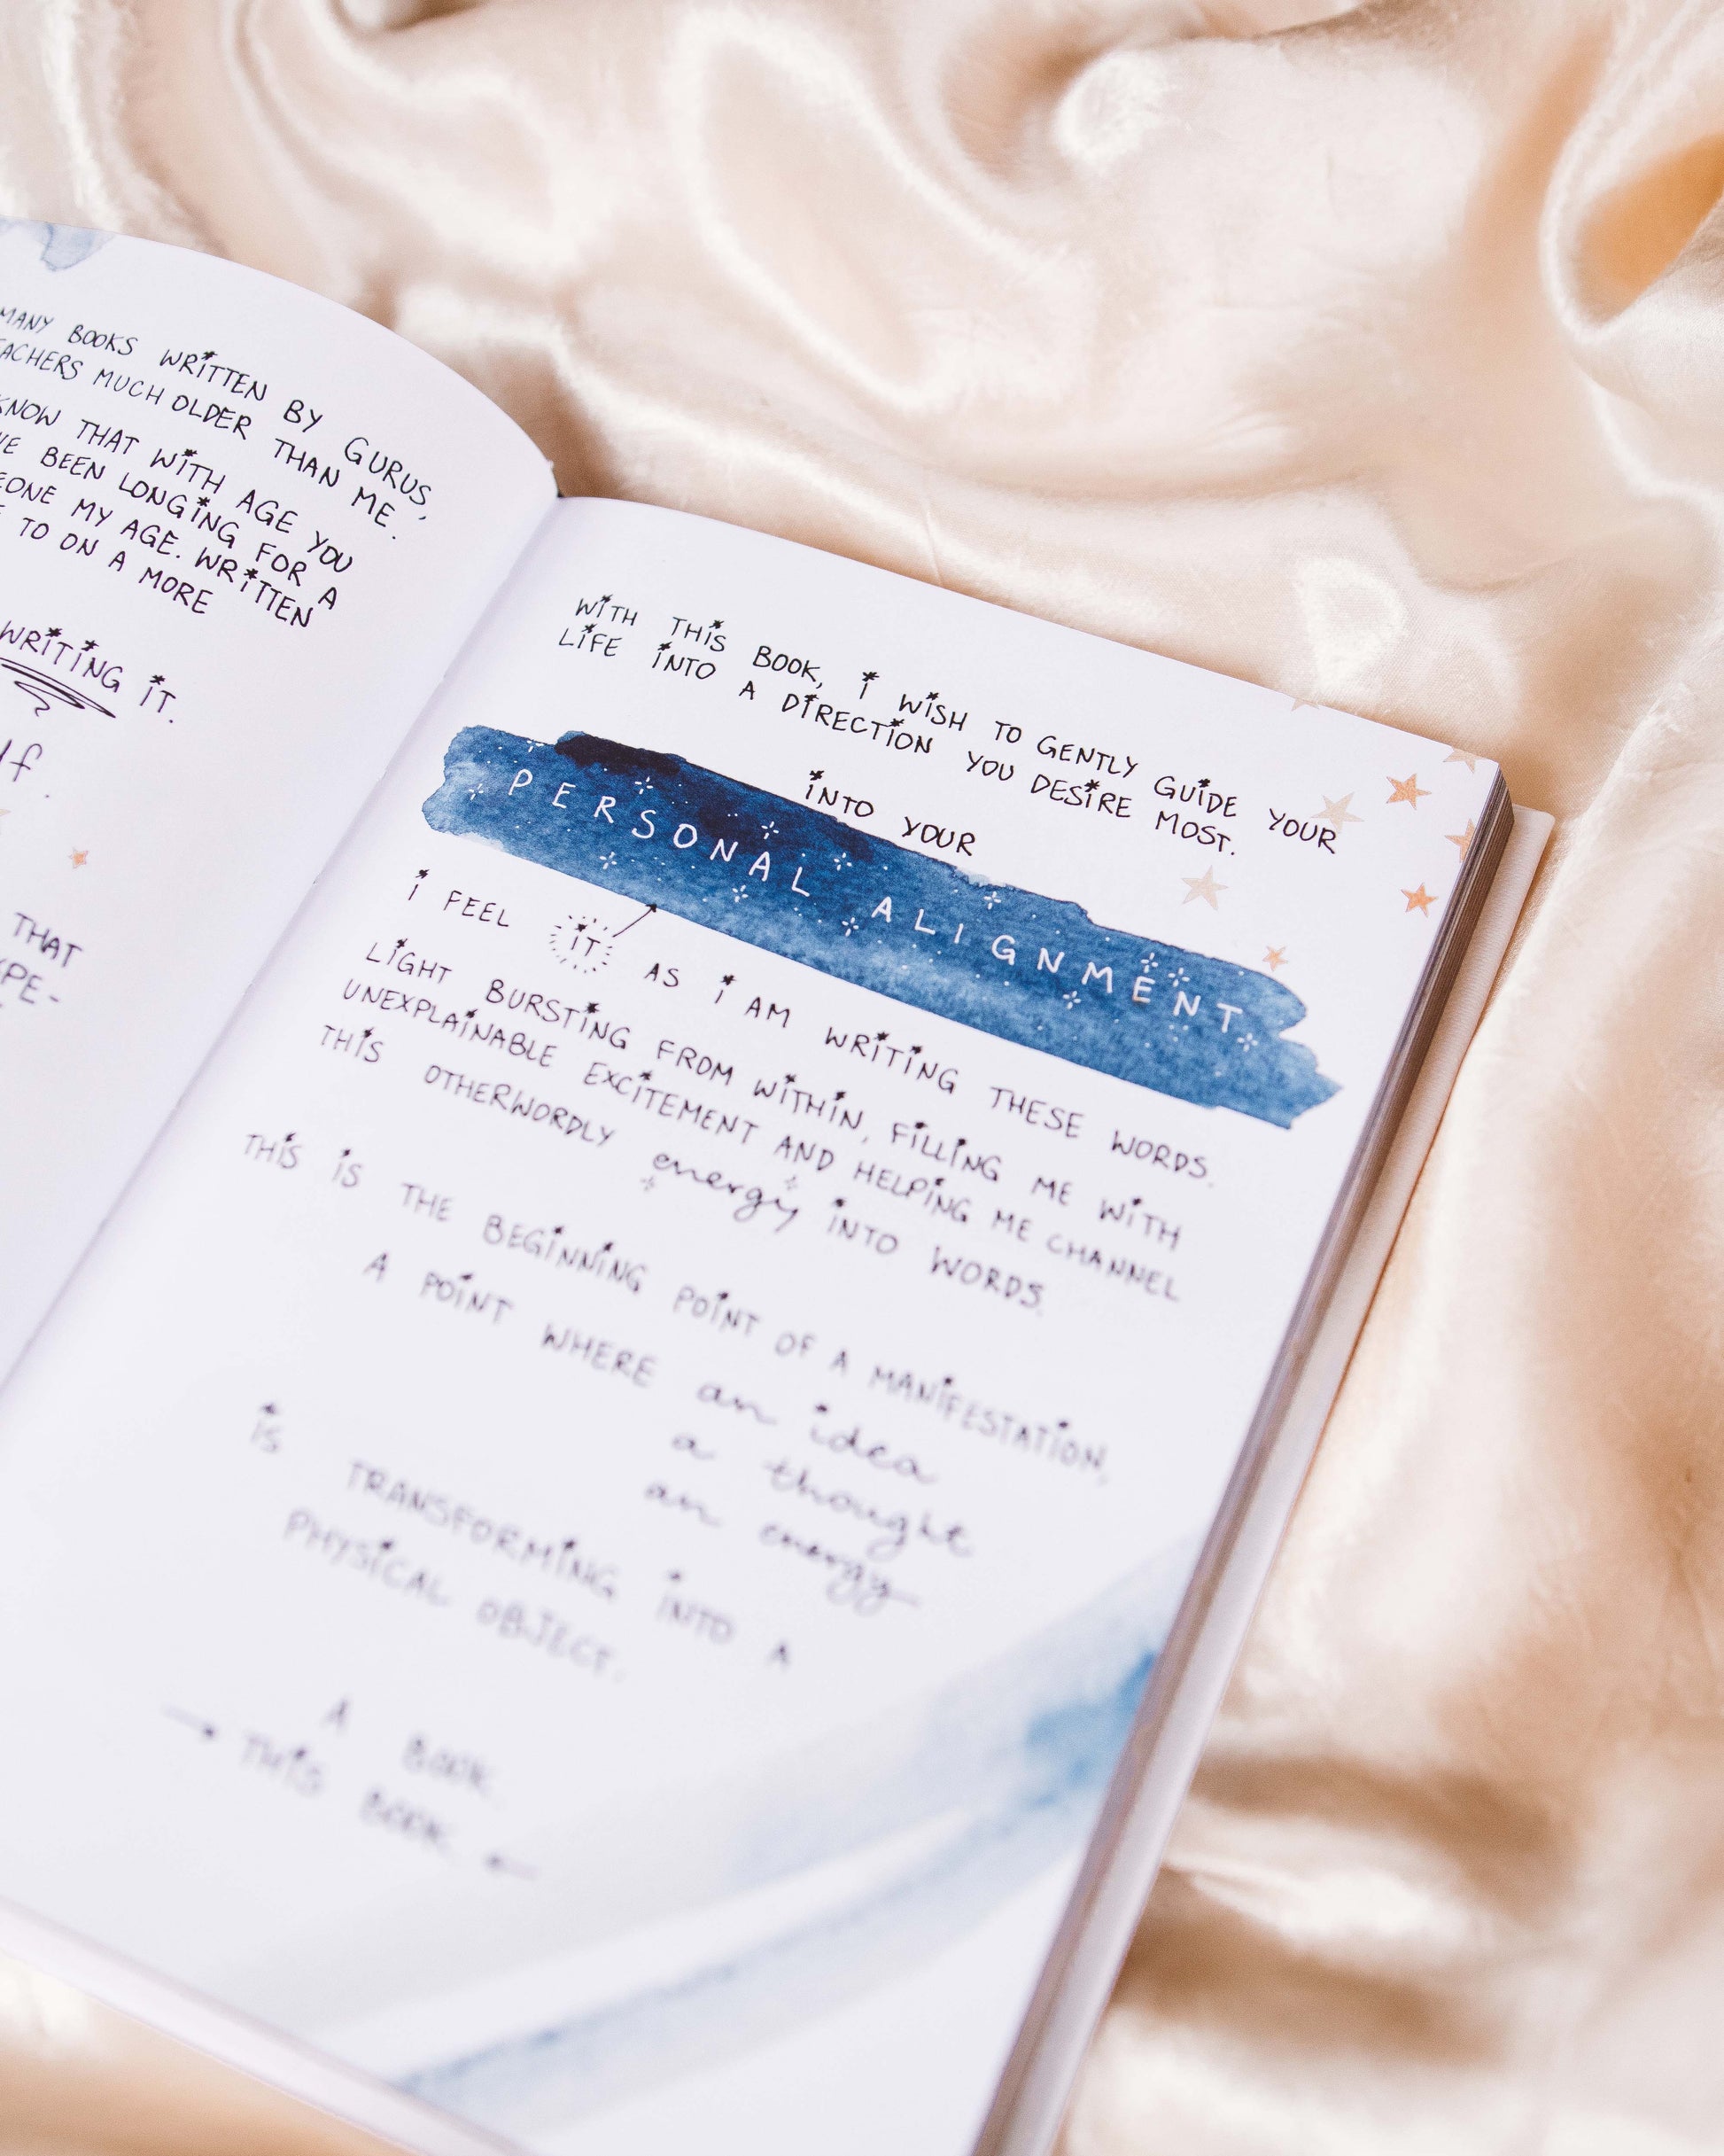 MANY BOOKS WRiTTEN BY GURUS,
EACHERS MUCH OLDER THAN ME.
KNOW THAT WiTH AGE YOU
VE BEEN LONGiNG FOR A
EONE MY AGE. WRiTTEN
TO ON A MORE
WRiTiNG iT.
lf.
THAT
XPE-
WiTH THiS BOOK, i WiSH TO GENTLY GUiDE YOUR
LiFE iNTO A DiRECTiON YOU DESiRE MOST.
iNTO YOUR
PERSONAL ALIGNMENT
i FEEL iT AS i AM WRiTiNG THESE WORDS.
LiGHT BURSTiNG FROM WiTHiN, FiLLiNG ME WiTH
UNEXPLAiNABLE EXCiTEMENT AND HELPiNG ME CHANNEL
THiS OTHERWORDLY energy iNTO WORDS.
THiS iS THE BEGiNNiNG POiNT OF A MANiFESTATiON,
A POiNT WHERE an idea
a thought
an energy
iS TRANSFORMiNG iNTO A
PHYSiCAL OBJECT.
A BOOK
THiS BOOK